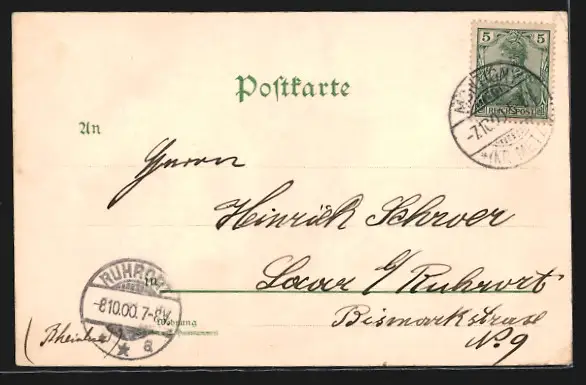 5 5
REICHSPOST
MONTIGNY
-7.10.00
*(KR. METZ)
Postkarte
An
Herrn
Heinrich Schroer
in Laar b/ Ruhrort
Wohnung Bismarkstrasse
N. 9
RUHRORT
-8.10.00. 7-8V.
* a
(Rheinland)